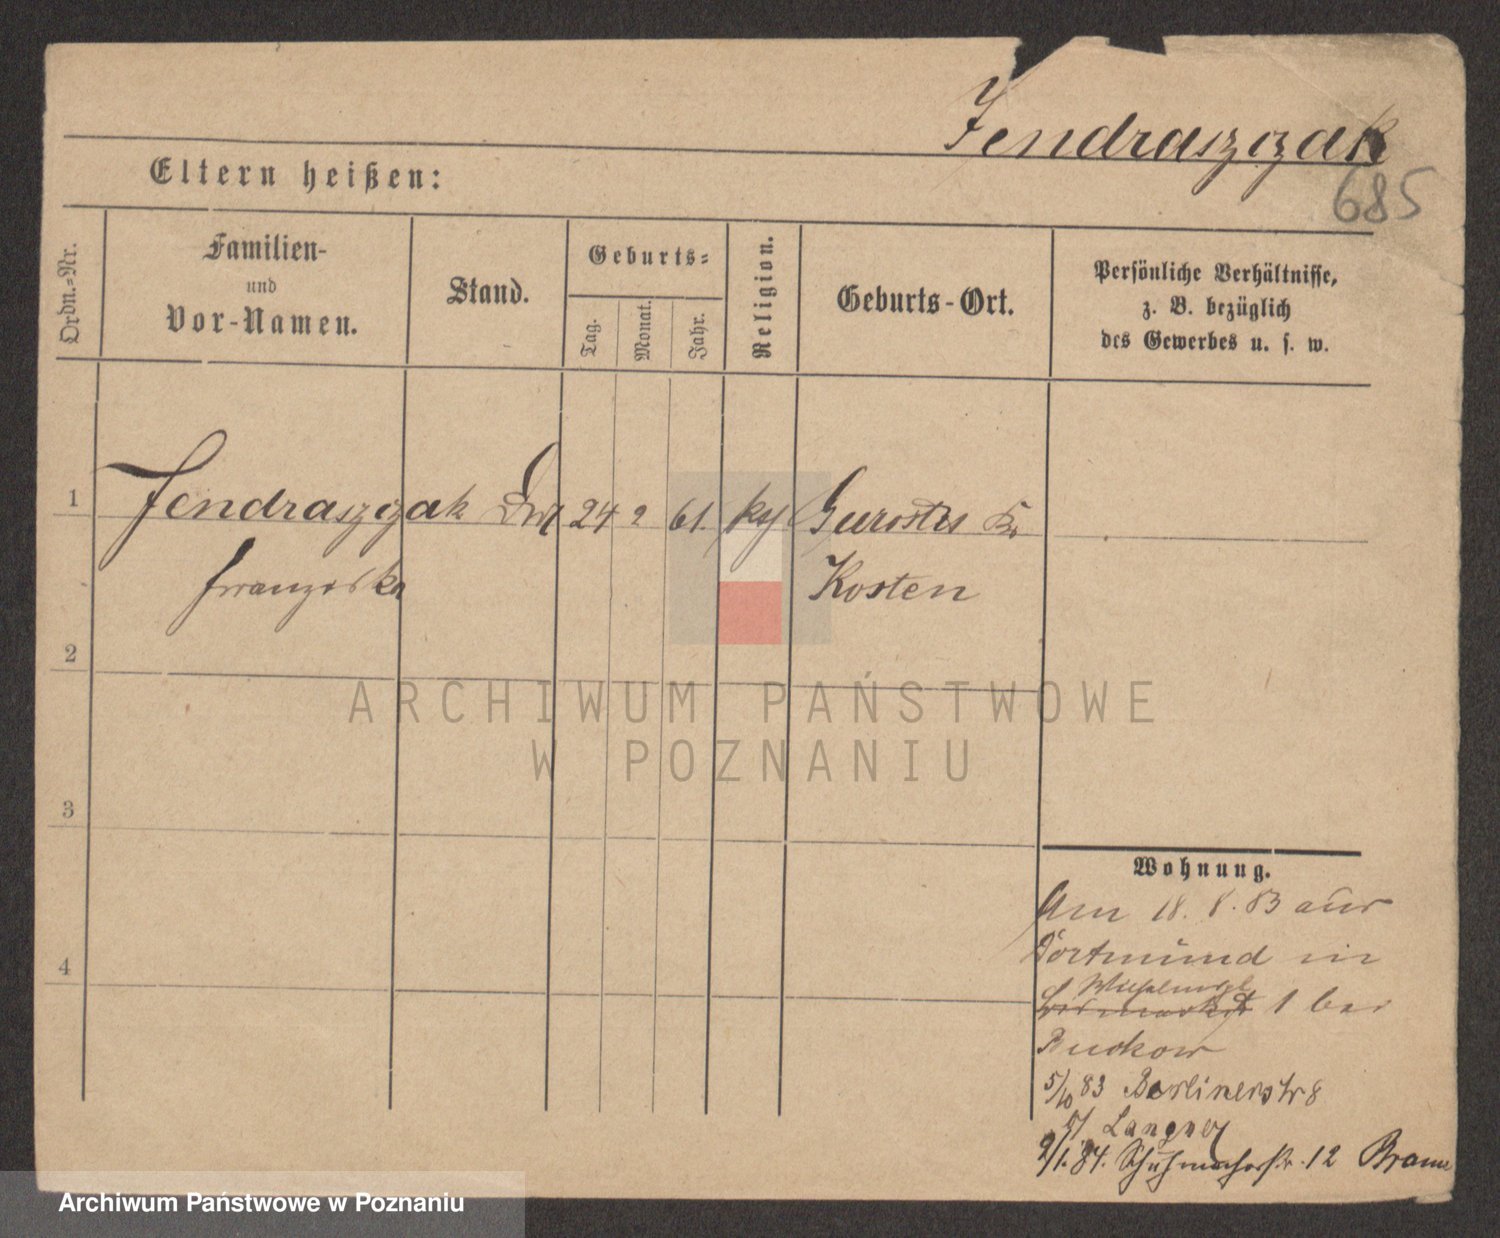 Jendraszczak
685
Eltern heißen:
Ordn.=Nr.
Familien-
und
Vor-Namen.
Stand.
Geburts=
Tag.
Monat.
Jahr.
Religion.
Geburts-Ort.
Persönliche Verhältnisse,
z. B. bezüglich
des Gewerbes u. s. w.
1
Jendraszczak 24 2 61.
Franziska Kosten
2
ARCHIWUM PAŃSTWOWE
W POZNANIU
3
Wohnung.
Am 18. 8. 83 aus
Dortmund in
4
1 bei
5/10 83 Berlinerstr 8
Langner
2/1. 84. Schuhmacherstr. 12
Archiwum Państwowe w Poznaniu